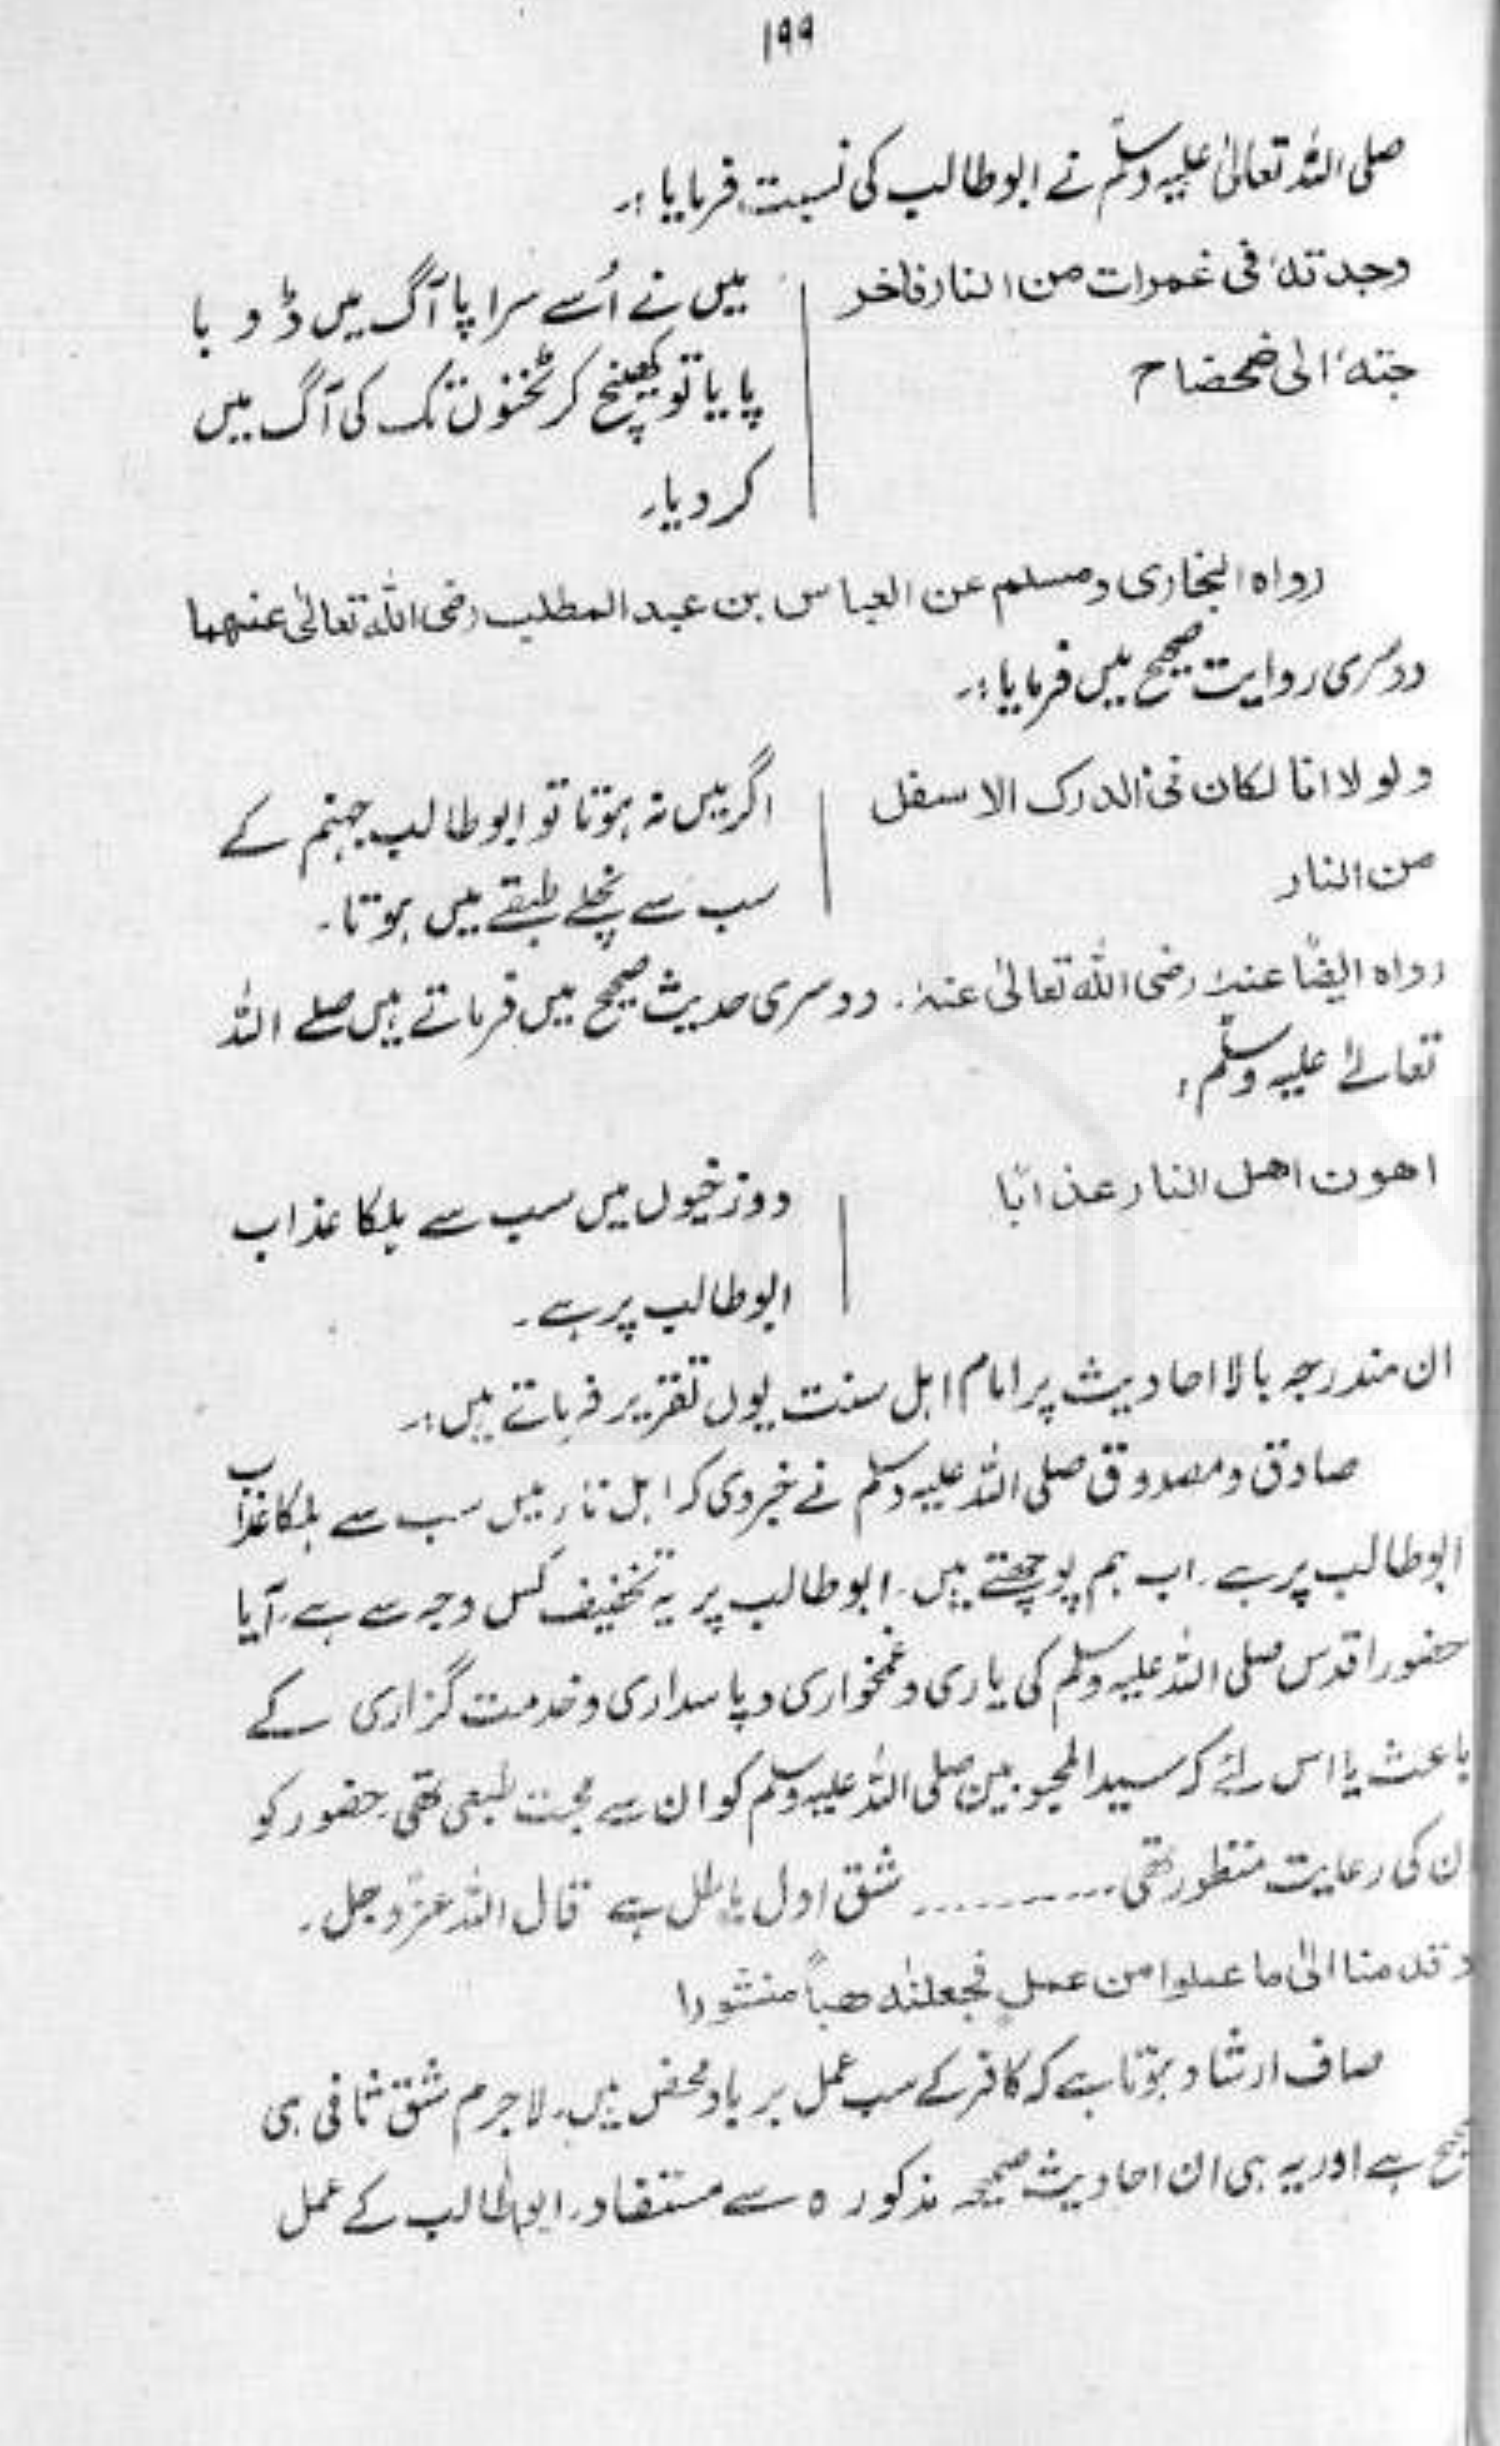 ۱۹۹
صلی اللہ تعالیٰ علیہ وسلم نے ابوطالب کی نسبت فرمایا :۔
وجدتہ فی غمرات من النار فاخر
جتہ الی ضحضاح
میں نے اُسے سراپا آگ میں ڈوبا
پایا تو کھینچ کر ٹخنوں تک کی آگ میں
کر دیا۔
رواہ البخاری ومسلم عن العباس بن عبد المطلب رضی اللہ تعالیٰ عنہما
دوسری روایت صحیح میں فرمایا :۔
ولو لا انا لکان فی الدرک الاسفل
من النار
اگر میں نہ ہوتا تو ابوطالب جہنم کے
سب سے نچلے طبقے میں ہوتا۔
رواہ ایضًا عنہ رضی اللہ تعالیٰ عنہ۔ دوسری حدیث صحیح میں فرماتے ہیں صلے اللہ
تعالےٰ علیہ وسلم :
اھون اھل النار عذابًا
دوزخیوں میں سب سے ہلکا عذاب
ابوطالب پر ہے۔
ان مندرجہ بالا احادیث پر امام اہل سنت یوں تقریر فرماتے ہیں :۔
صادق ومصدوق صلی اللہ علیہ وسلم نے خبر دی کہ اہل نار میں سب سے ہلکا عذاب
ابوطالب پر ہے۔ اب ہم پوچھتے ہیں۔ ابوطالب پر یہ تخفیف کس وجہ سے ہے۔ آیا
حضور اقدس صلی اللہ علیہ وسلم کی یاری وغمخواری وپاسداری وخدمت گزاری کے
باعث یا اس لئے کہ سید المحبوبین صلی اللہ علیہ وسلم کو ان سے محبت طبعی تھی۔ حضور کو
ان کی رعایت منظور تھی ۔۔۔۔۔۔۔۔۔۔ شق اول باطل ہے قال اللہ عزوجل۔
وقدمنا الیٰ ما عملوا من عملٍ فجعلنٰہ ھباً منشورا
صاف ارشاد ہوتا ہے کہ کافر کے سب عمل برباد محض ہیں۔ لاجرم شق ثانی ہی
صحیح ہے اور یہ ہی ان احادیث صحیحہ مذکورہ سے مستفاد۔ ابوطالب کے عمل